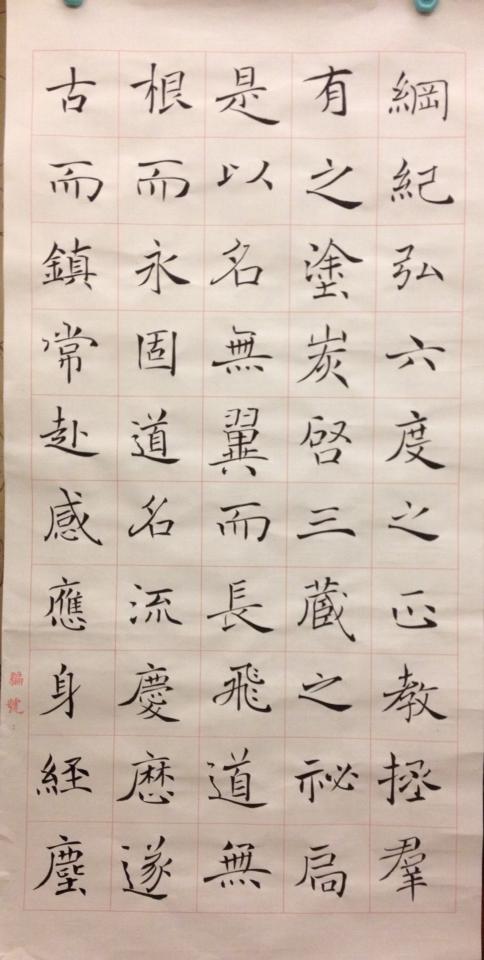 綱紀弘六度之正教拯羣
有之塗炭啓三藏之祕扃
是以名無翼而長飛道無
根而永固道名流慶歷遂
古而鎮常赴感應身經塵
編號: